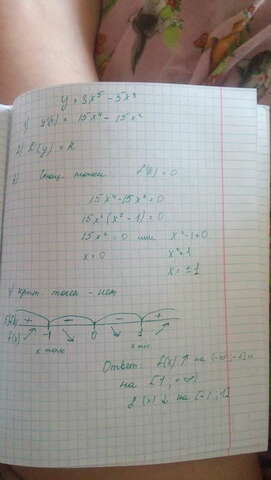 y = 3x⁵ - 5x³
1) y'(x) = 15x⁴ - 15x²
2) D(y) = R
3) Стац. точки f'(x) = 0
15x⁴ - 15x² = 0
15x² (x² - 1) = 0
15x² = 0 или x² - 1 = 0
x = 0 x² = 1
x = ±1
крит. точек - нет
+ - - +
f(x) -1 0 1
Ответ: f(x) ↑ на (-∞; -1] и
на [1; +∞)
f(x) ↓ на [-1; 1]